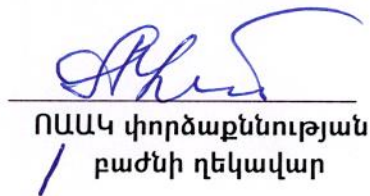 ՈԱԱԿ փորձաքննության
բաժնի ղեկավար